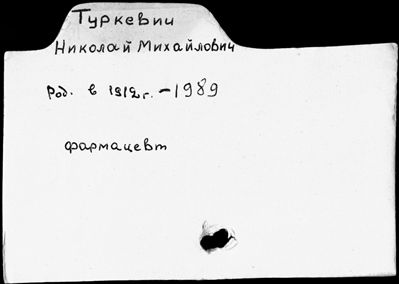 Туркевич
Николай Михайлович
Род. в 1912г. - 1989
фармацевт